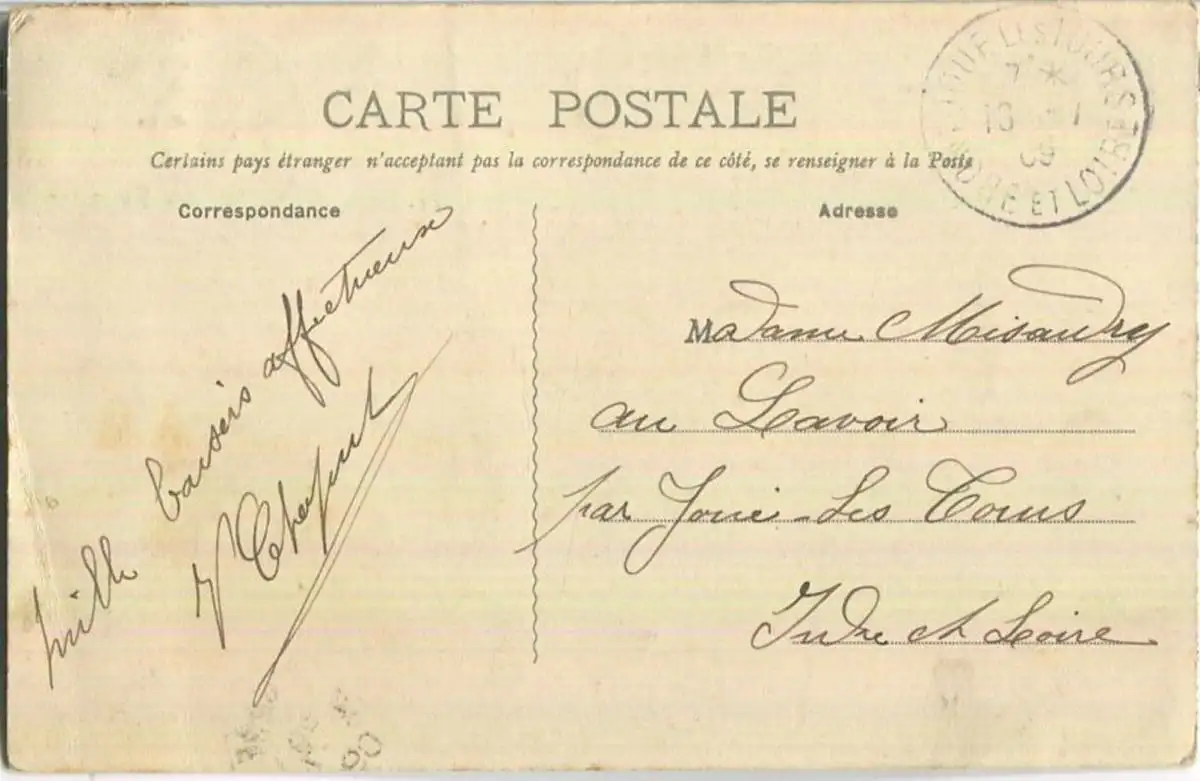 CARTE POSTALE
Certains pays étranger n'acceptant pas la correspondance de ce côté, se renseigner à la Poste
Correspondance
mille baisers affectueuse
Adresse
Madame Misandry
au Lavoir
par Joué-Les Tours
Indre et Loire
JOUÉ LES TOURS
7 *
13 -1
09
INDRE ET LOIRE